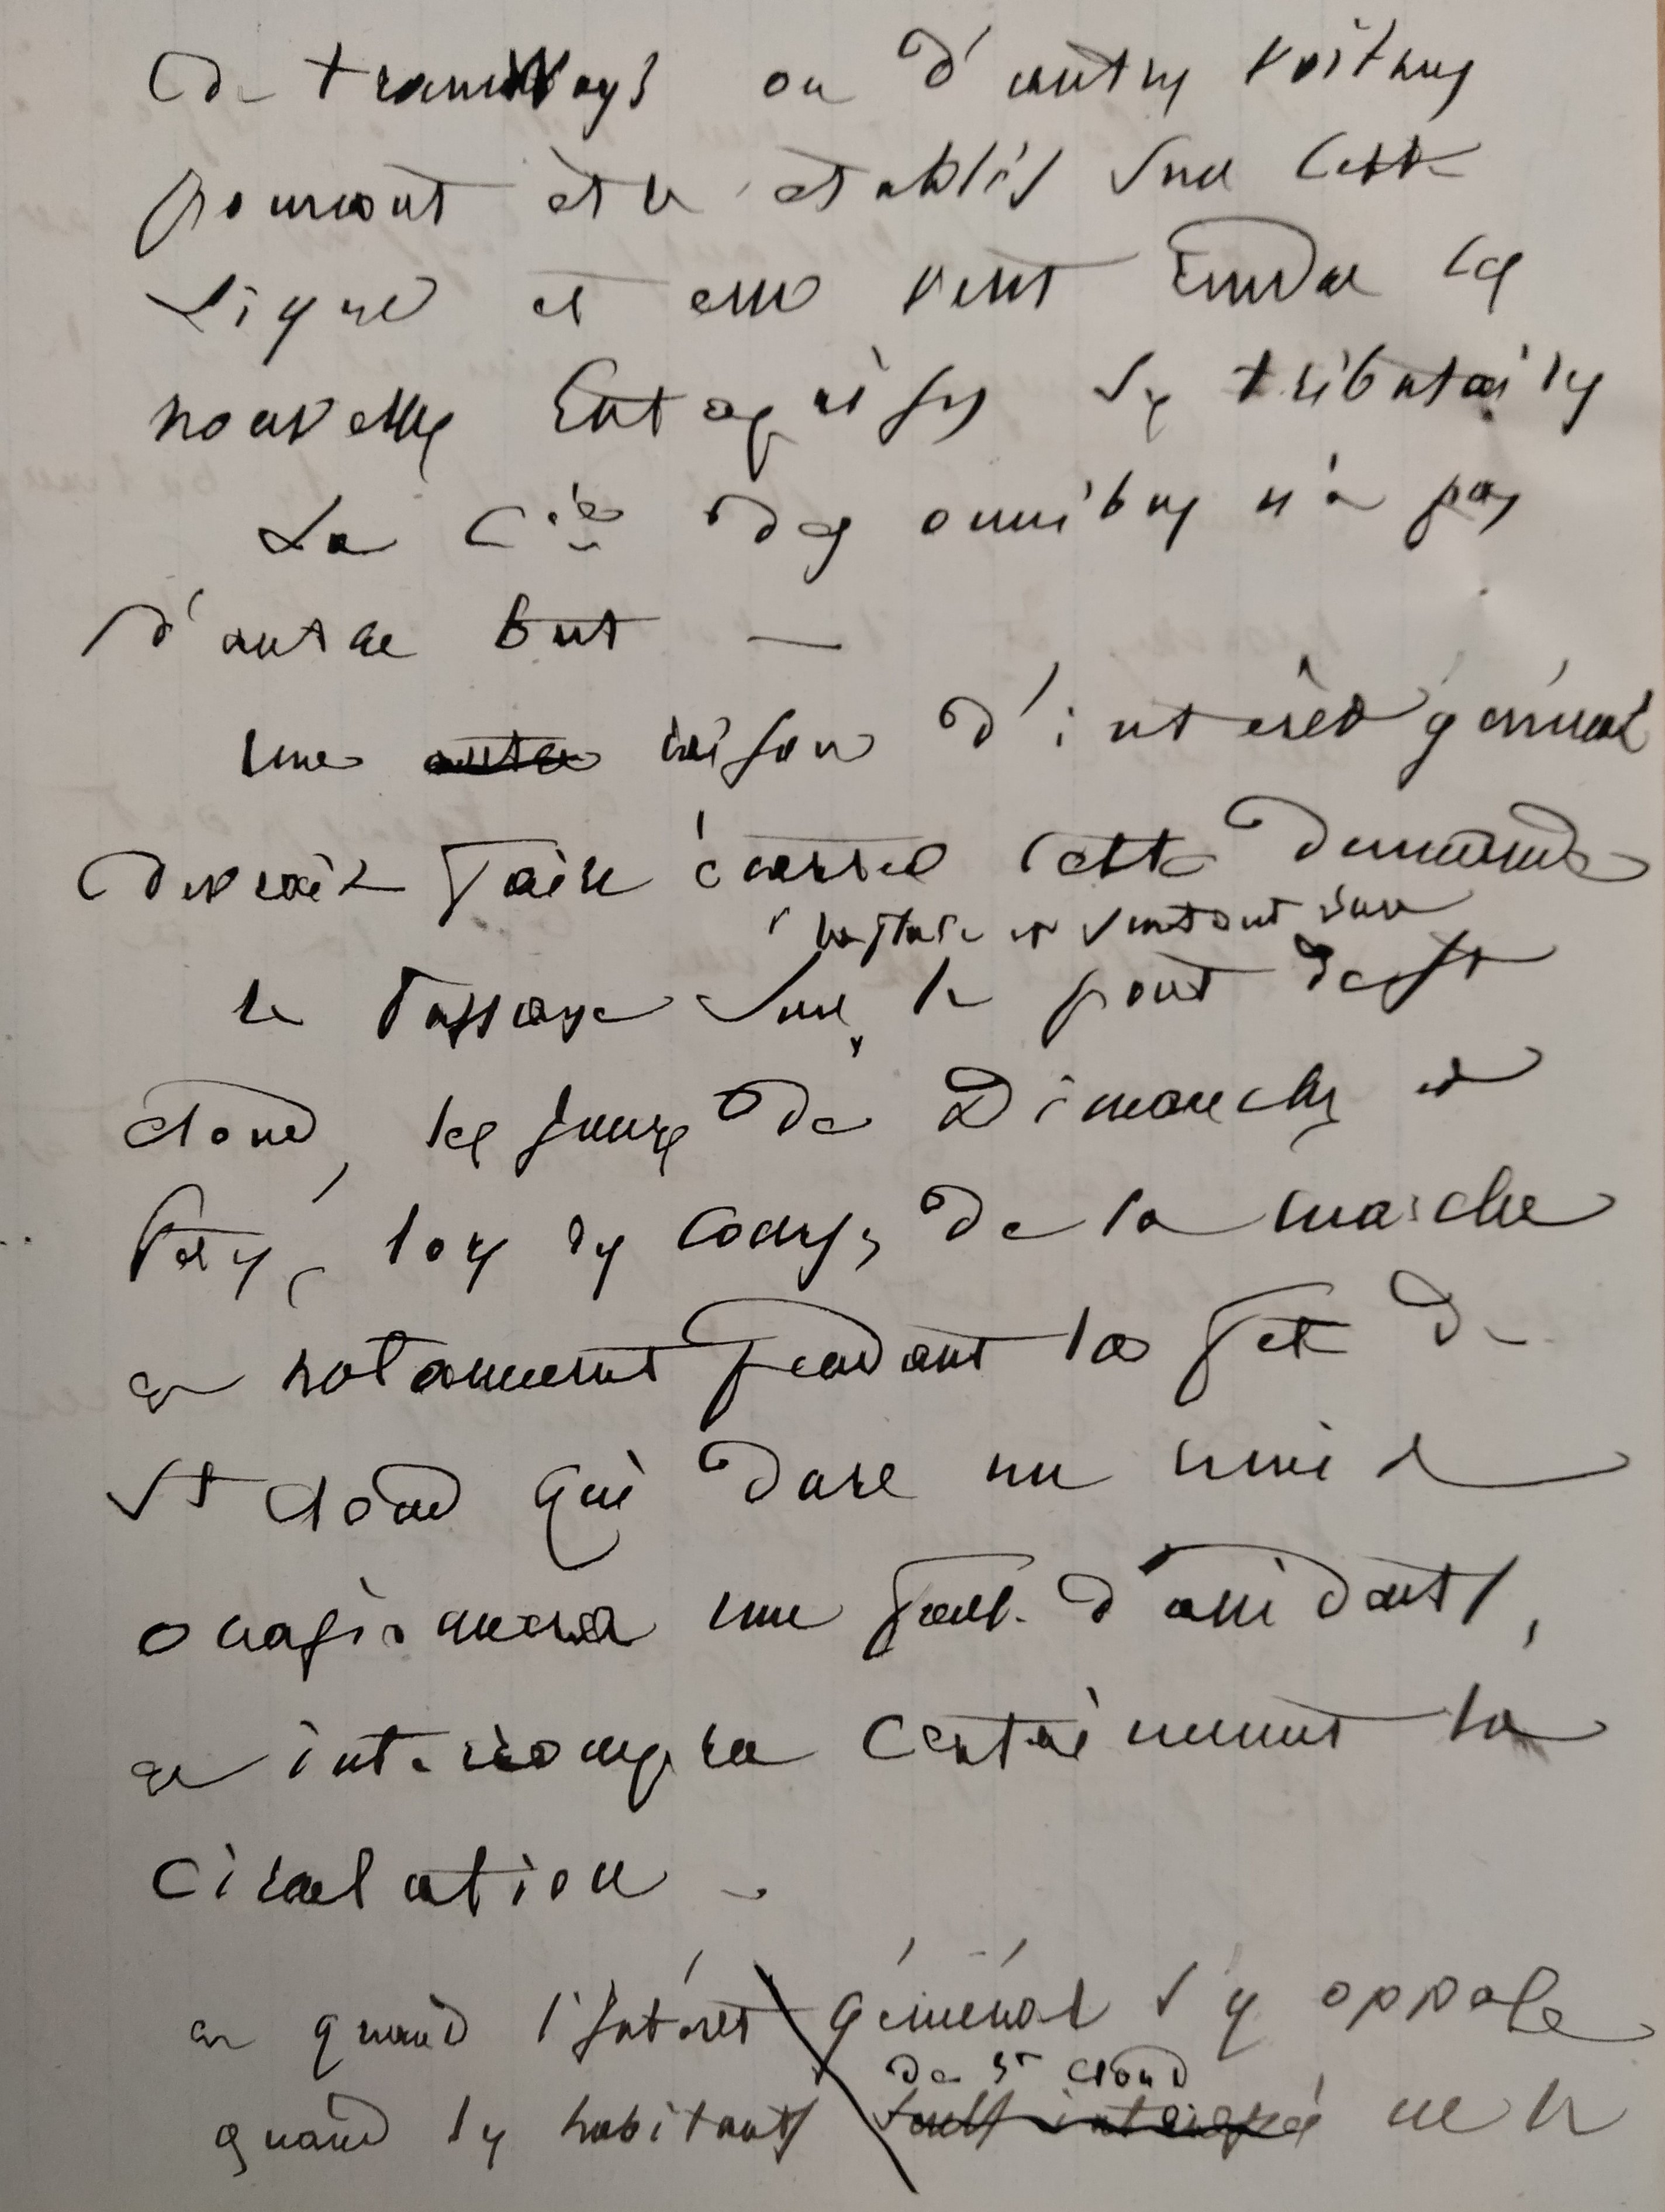 de tramways ou d'autres voitures
pourront être établis sur cette
ligne et elle veut rendre ces
nouvelles Entreprises ses tributaires
La Cie des omnibus n'a pas
d'autre but —
une autre raison d'intérêt général
devrait faire écarter cette demande
et surtout sur
le passage sur le pont de St
Cloud, les jours de Dimanches et
fêtes, les jours de courses de la marche
et notamment pendant la fête de
St Cloud qui dure un mois
occasionnera une foule d'accidents,
et interrompra certainement la
circulation -
et quand l'intérêt général s'y oppose
de St Cloud
quand les habitants seuls intéressés ne le